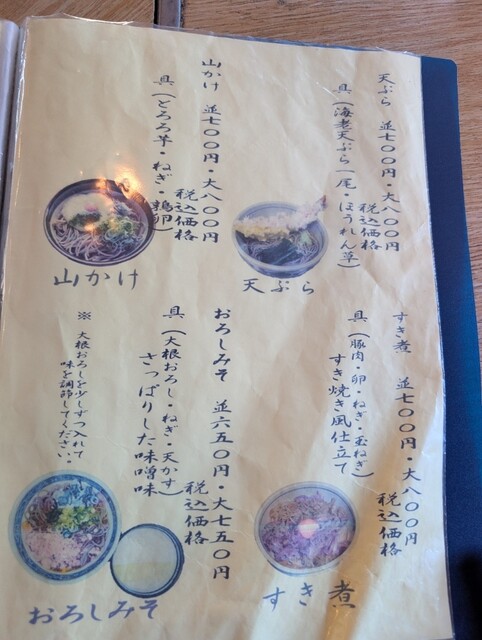 天ぷら 並七〇〇円・大八〇〇円
税込価格
具（海老天ぷら一尾・ほうれん草）
天ぷら
山かけ 並七〇〇円・大八〇〇円
税込価格
具（とろろ芋・ねぎ・鶏卵）
山かけ
すき煮 並七〇〇円・大八〇〇円
税込価格
具（豚肉・卵・ねぎ・玉ねぎ）
すき焼き風仕立て
すき煮
おろしみそ 並六五〇円・大七五〇円
税込価格
具（大根おろし・ねぎ・天かす）
さっぱりした味噌味
※ 大根おろしを少しずつ入れて
味を調節してください。
おろしみそ